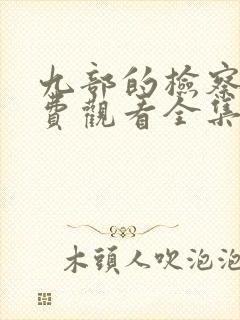 九部的檢察
費觀看全集
木頭人吹泡泡